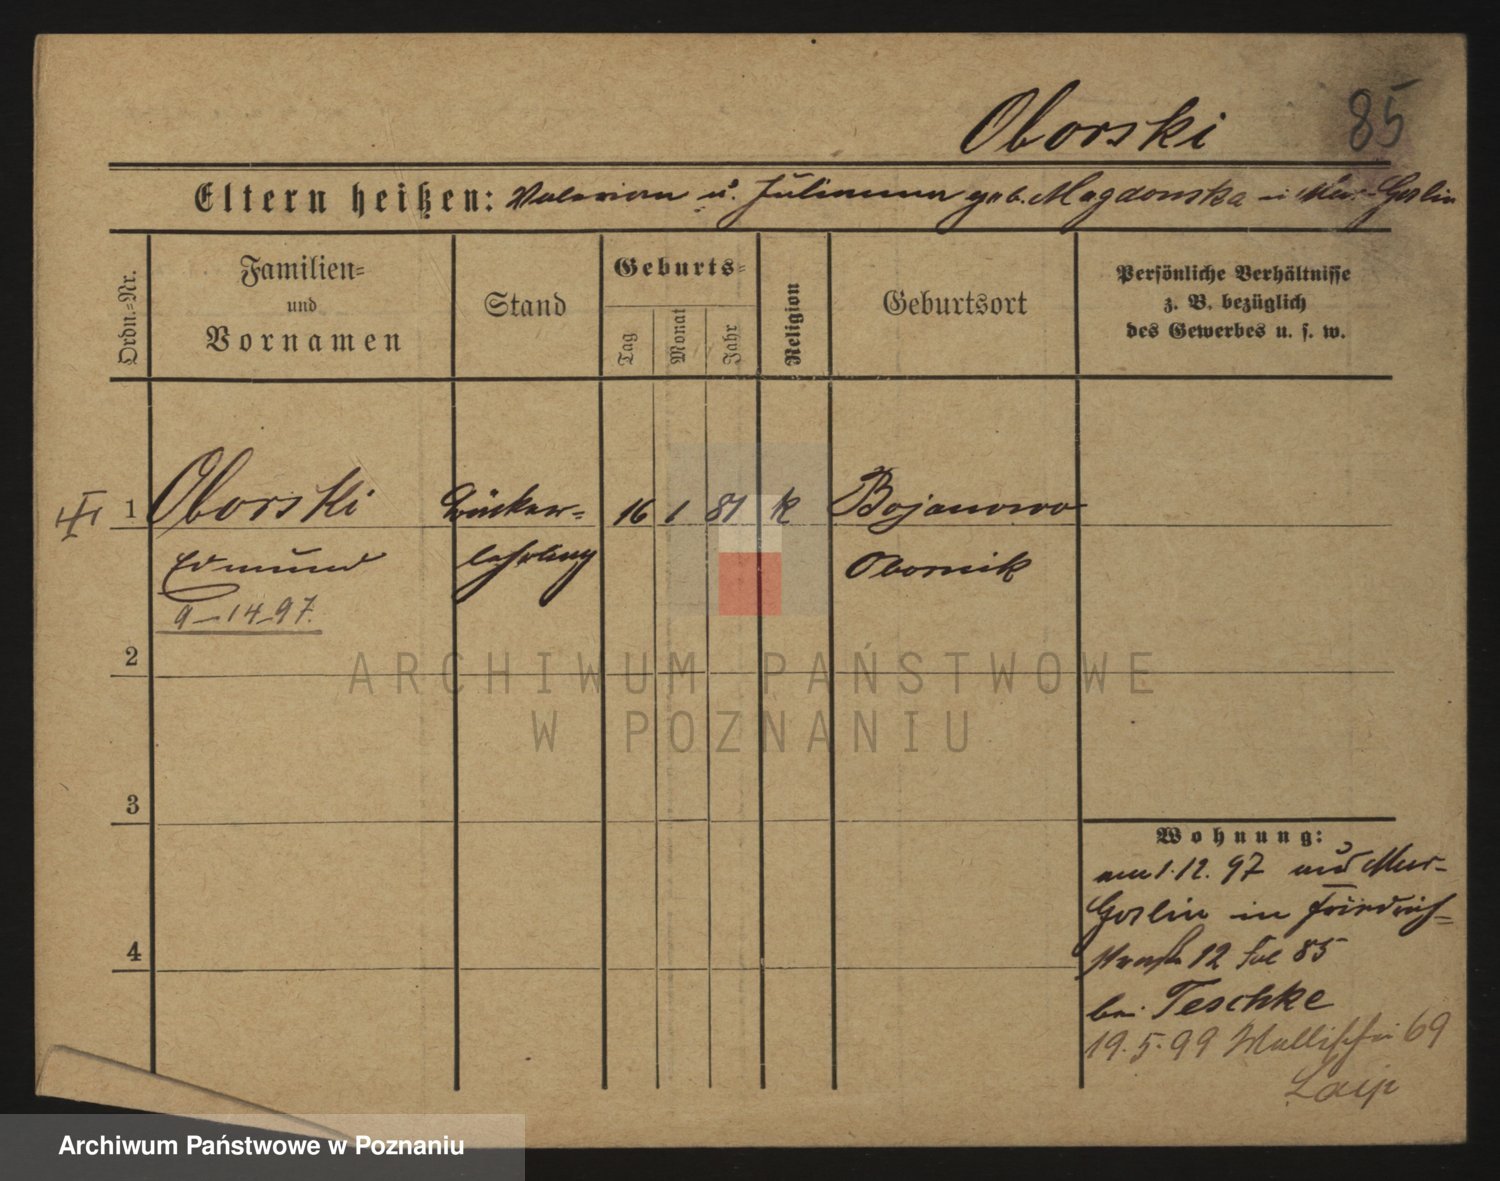 Oborski 85
Eltern heißen: Valerian u. Julianna geb. Magdonska in Mur. Goslin
Ordn.-Nr.
Familien-
und
Vornamen
Stand
Geburts-
Tag
Monat
Jahr
Religion
Geburtsort
Persönliche Verhältnisse
z. B. bezüglich
des Gewerbes u. s. w.
1 Oborski Bäcker- 16 1 81 k Bojanowo
Edmund lehrling Obornik
9-14-97.
2
ARCHIWUM PAŃSTWOWE
W POZNANIU
3
Wohnung:
am 1.12.97 aus Mur-
Goslin in Friedrich-
straße 12 Fol 85
4
bei Teschke
19.5.99 Wallischei 69
Archiwum Państwowe w Poznaniu